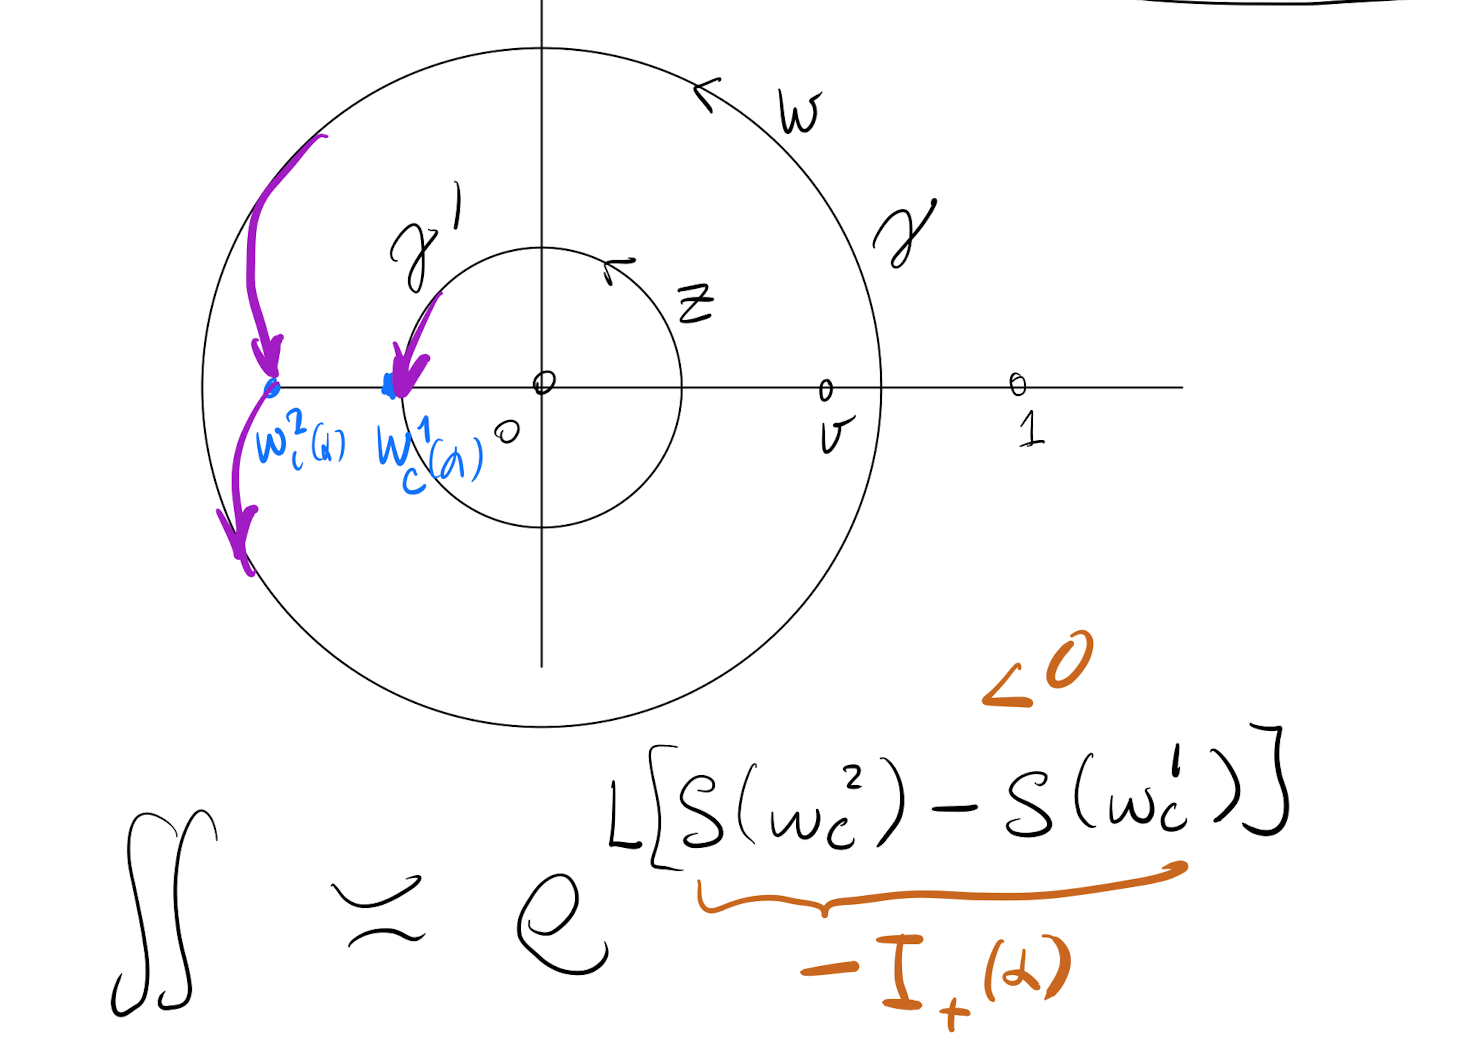 w
γ
γ'
z
w_c^2(α) w_c^1(α) 0 v 1
<0
∬ ≍ e^{L[S(w_c^2) − S(w_c^1)]}
−I_+(α)